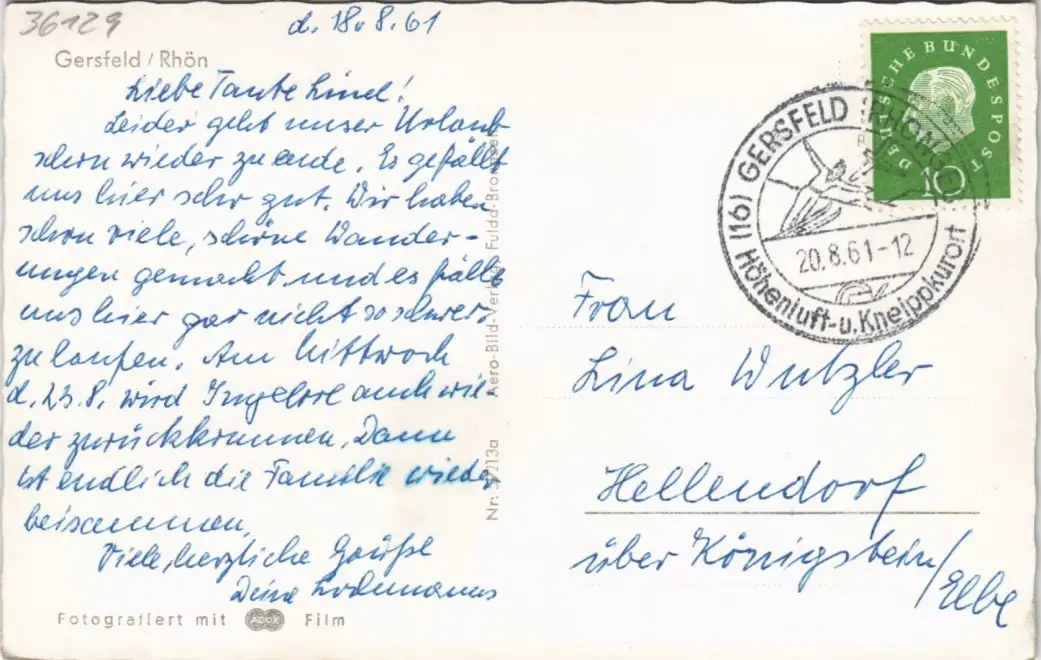 36129
d. 18. 8. 61
Gersfeld / Rhön
Liebe Tante Linel!
Leider geht unser Urlaub
schon wieder zu ende. Es gefällt
uns hier sehr gut. Wir haben
schon viele, schöne Wander-
ungen gemacht und es fällt
uns hier gar nicht so schwer
zu laufen. Am Mittwoch
d. 23.8. wird Ingelore auch wie-
der zurückkommen. Dann
ist endlich die Familie wieder
beisammen.
Viele, herzliche Grüße
Deine
Fotografiert mit ADOX Film
Nr: 213a Aero-Bild-Verlag Fulda-Bronnzell
DEUTSCHE BUNDESPOST
10
(16) GERSFELD (RHÖN)
20.8.61-12
Höhenluft-u. Kneippkurort
Frau
Lina Wutzler
Hellendorf
über Königstein/
Elbe